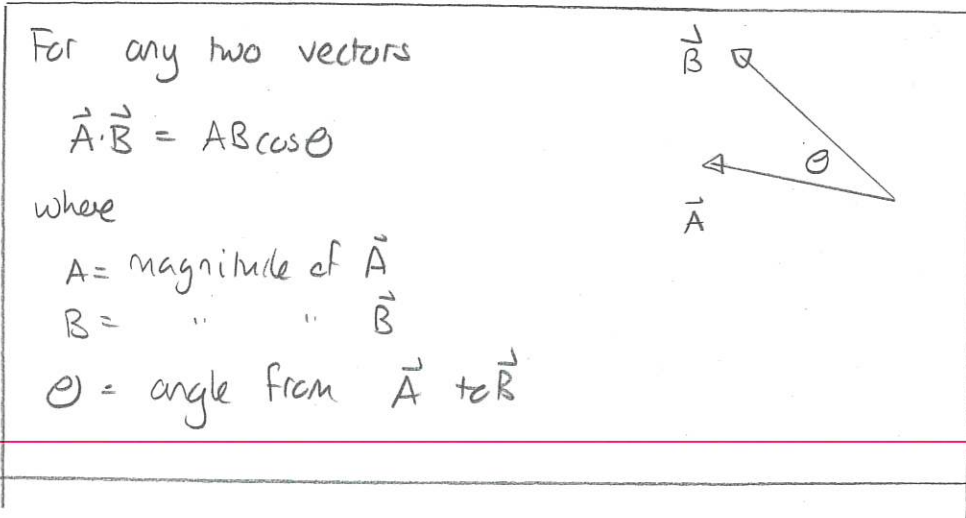 For any two vectors
A⃗·B⃗ = AB cosθ
where
A = magnitude of A⃗
B = " " B⃗
θ = angle from A⃗ to B⃗
B⃗
θ
A⃗